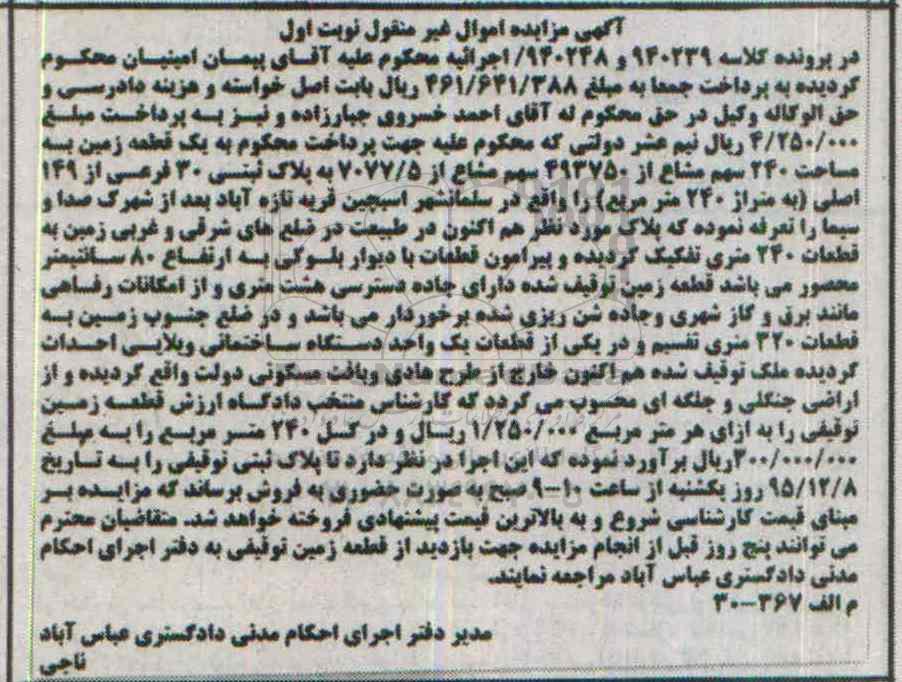 آگهی مزایده اموال غیر منقول نوبت اول
در پرونده کلاسه ۹۴۰۲۳۹ و ۹۴۰۲۴۸/ اجرائیه محکوم علیه آقای پیمان امینیان محکوم
گردیده به پرداخت جمعا به مبلغ ۴۶۱/۶۴۱/۳۸۸ ریال بابت اصل خواسته و هزینه دادرسی و
حق الوکاله وکیل در حق محکوم له آقای احمد خسروی جبارزاده و نیز به پرداخت مبلغ
۴/۲۵۰/۰۰۰ ریال نیم عشر دولتی که محکوم علیه جهت پرداخت محکوم به یک قطعه زمین به
مساحت ۲۴۰ سهم مشاع از ۴۹۳۷۵۰ سهم مشاع از ۷۰۷۷/۵ به پلاک ثبتی ۳۰ فرعی از ۱۴۹
اصلی (به متراژ ۲۴۰ متر مربع) را واقع در سلمانشهر اسبچین قریه تازه آباد بعد از شهرک صدا و
سیما را تعرفه نموده که پلاک مورد نظر هم اکنون در طبیعت در ضلع های شرقی و غربی زمین به
قطعات ۲۴۰ متری تفکیک گردیده و پیرامون قطعات با دیوار بلوکی به ارتفاع ۸۰ سانتیمتر
محصور می باشد قطعه زمین توقیف شده دارای جاده دسترسی هشت متری و از امکانات رفاهی
مانند برق و گاز شهری وجاده شن ریزی شده برخوردار می باشد و در ضلع جنوب زمین به
قطعات ۳۲۰ متری تقسیم و در یکی از قطعات یک واحد دستگاه ساختمانی ویلایی احداث
گردیده ملک توقیف شده هم اکنون خارج از طرح هادی وبافت مسکونی دولت واقع گردیده و از
اراضی جنگلی و جلگه ای محسوب می گردد که کارشناس منتخب دادگاه ارزش قطعه زمین
توقیفی را به ازای هر متر مربع ۱/۲۵۰/۰۰۰ ریال و در کل ۲۴۰ متر مربع را به مبلغ
۳۰۰/۰۰۰/۰۰۰ریال برآورد نموده که این اجرا در نظر دارد تا پلاک ثبتی توقیفی را به تاریخ
۹۵/۱۲/۸ روز یکشنبه از ساعت ۱۰–۹ صبح به صورت حضوری به فروش برساند که مزایده بر
مبنای قیمت کارشناسی شروع و به بالاترین قیمت پیشنهادی فروخته خواهد شد. متقاضیان محترم
می توانند پنج روز قبل از انجام مزایده جهت بازدید از قطعه زمین توقیفی به دفتر اجرای احکام
مدنی دادگستری عباس آباد مراجعه نمایند.
م الف ۳۶۷–۳۰
مدیر دفتر اجرای احکام مدنی دادگستری عباس آباد
ناجی